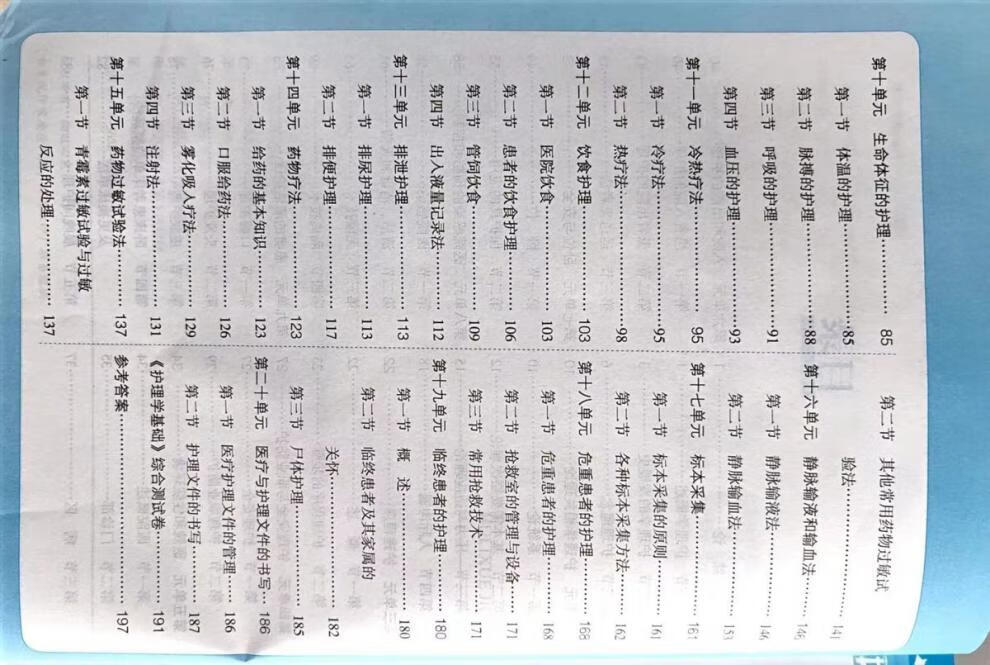 第十单元 生命体征的护理…………85
第一节 体温的护理…………85
第二节 脉搏的护理…………88
第三节 呼吸的护理…………91
第四节 血压的护理…………93
第十一单元 冷热疗法…………95
第一节 冷疗法…………95
第二节 热疗法…………98
第十二单元 饮食护理…………103
第一节 医院饮食…………103
第二节 患者的饮食护理…………106
第三节 管饲饮食…………109
第四节 出入液量记录法…………112
第十三单元 排泄护理…………113
第一节 排尿护理…………113
第二节 排便护理…………117
第十四单元 药物疗法…………123
第一节 给药的基本知识…………123
第二节 口服给药法…………126
第三节 雾化吸入疗法…………129
第四节 注射法…………131
第十五单元 药物过敏试验法…………137
第一节 青霉素过敏试验与过敏
反应的处理…………137
第二节 其他常用药物过敏试
验法…………141
第十六单元 静脉输液和输血法…………146
第一节 静脉输液法…………146
第二节 静脉输血法…………153
第十七单元 标本采集…………161
第一节 标本采集的原则…………161
第二节 各种标本采集方法…………162
第十八单元 危重患者的护理…………168
第一节 危重患者的护理…………168
第二节 抢救室的管理与设备…………171
第三节 常用抢救技术…………171
第十九单元 临终患者的护理…………180
第一节 概 述…………180
第二节 临终患者及其家属的
关怀…………182
第三节 尸体护理…………185
第二十单元 医疗与护理文件的书写 186
第一节 医疗护理文件的管理…………186
第二节 护理文件的书写…………187
《护理学基础》综合测试卷…………191
参考答案…………197